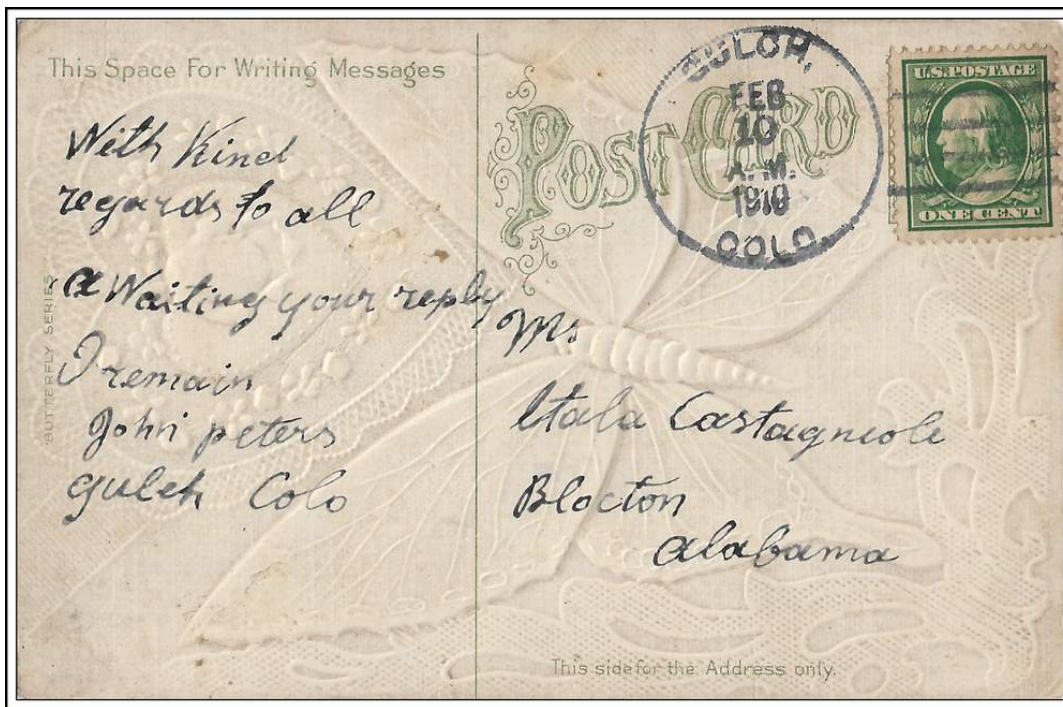 This Space For Writing Messages
With Kind
regards to all
a Waiting your reply
I remain
John peters
gulch Colo
BUTTERFLY SERIES
POST CARD
GULCH,
FEB
10
A.M.
1910
COLO.
U.S. POSTAGE
ONE CENT
Ms
Itala Castagneole
Blocton
alabama
This side for the Address only.